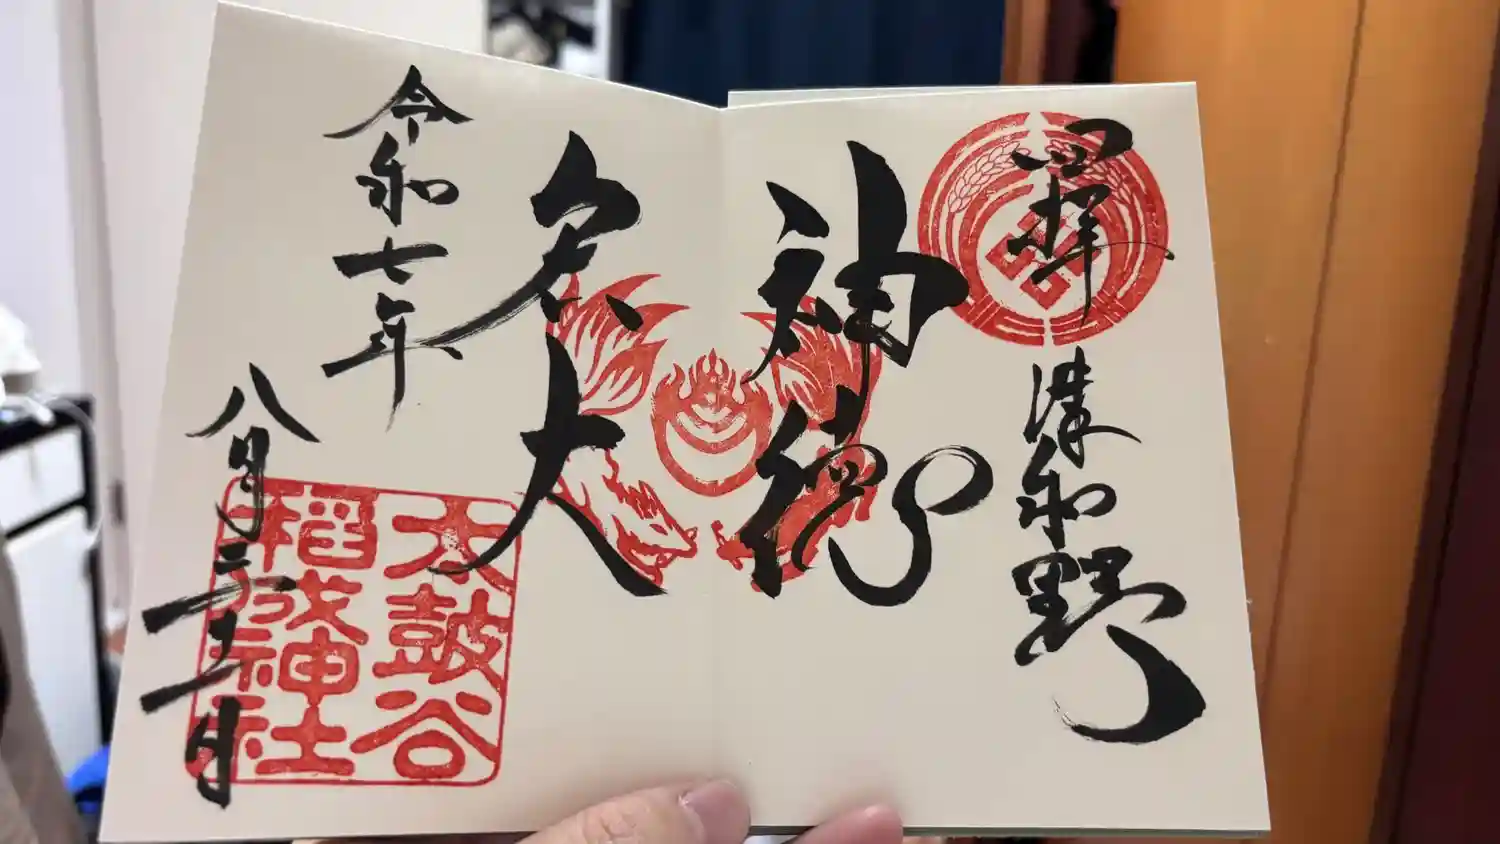 拝
津和野
神徳
大
令和七年
八月
日
太鼓谷
稲成神社